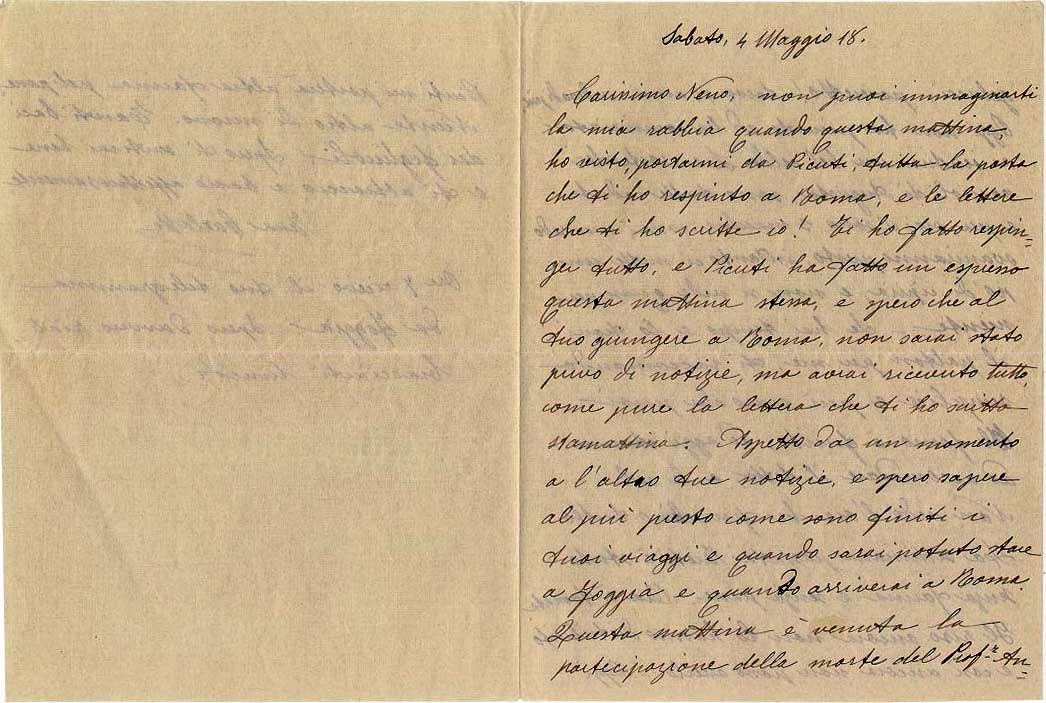 Sabato, 4 Maggio 18.
Carissimo Neno, non puoi immaginarti
la mia rabbia quando questa mattina,
ho visto, portarmi da Picuti, tutta la posta
che ti ho respinto a Roma, e le lettere
che ti ho scritte io! Ti ho fatto respin=
ger tutto, e Picuti ha fatto un espresso
questa mattina stessa, e spero che al
tuo giungere a Roma, non sarai stato
privo di notizie, ma avrai ricevuto tutto,
come pure la lettera che ti ho scritta
stamattina. Aspetto da un momento
a l'altro tue notizie, e spero sapere
al più presto come sono finiti i
tuoi viaggi e quando sarai potuto stare
a Foggia e quando arriverai a Roma.
Questa mattina è venuta la
partecipazione della morte del Prof.r An=